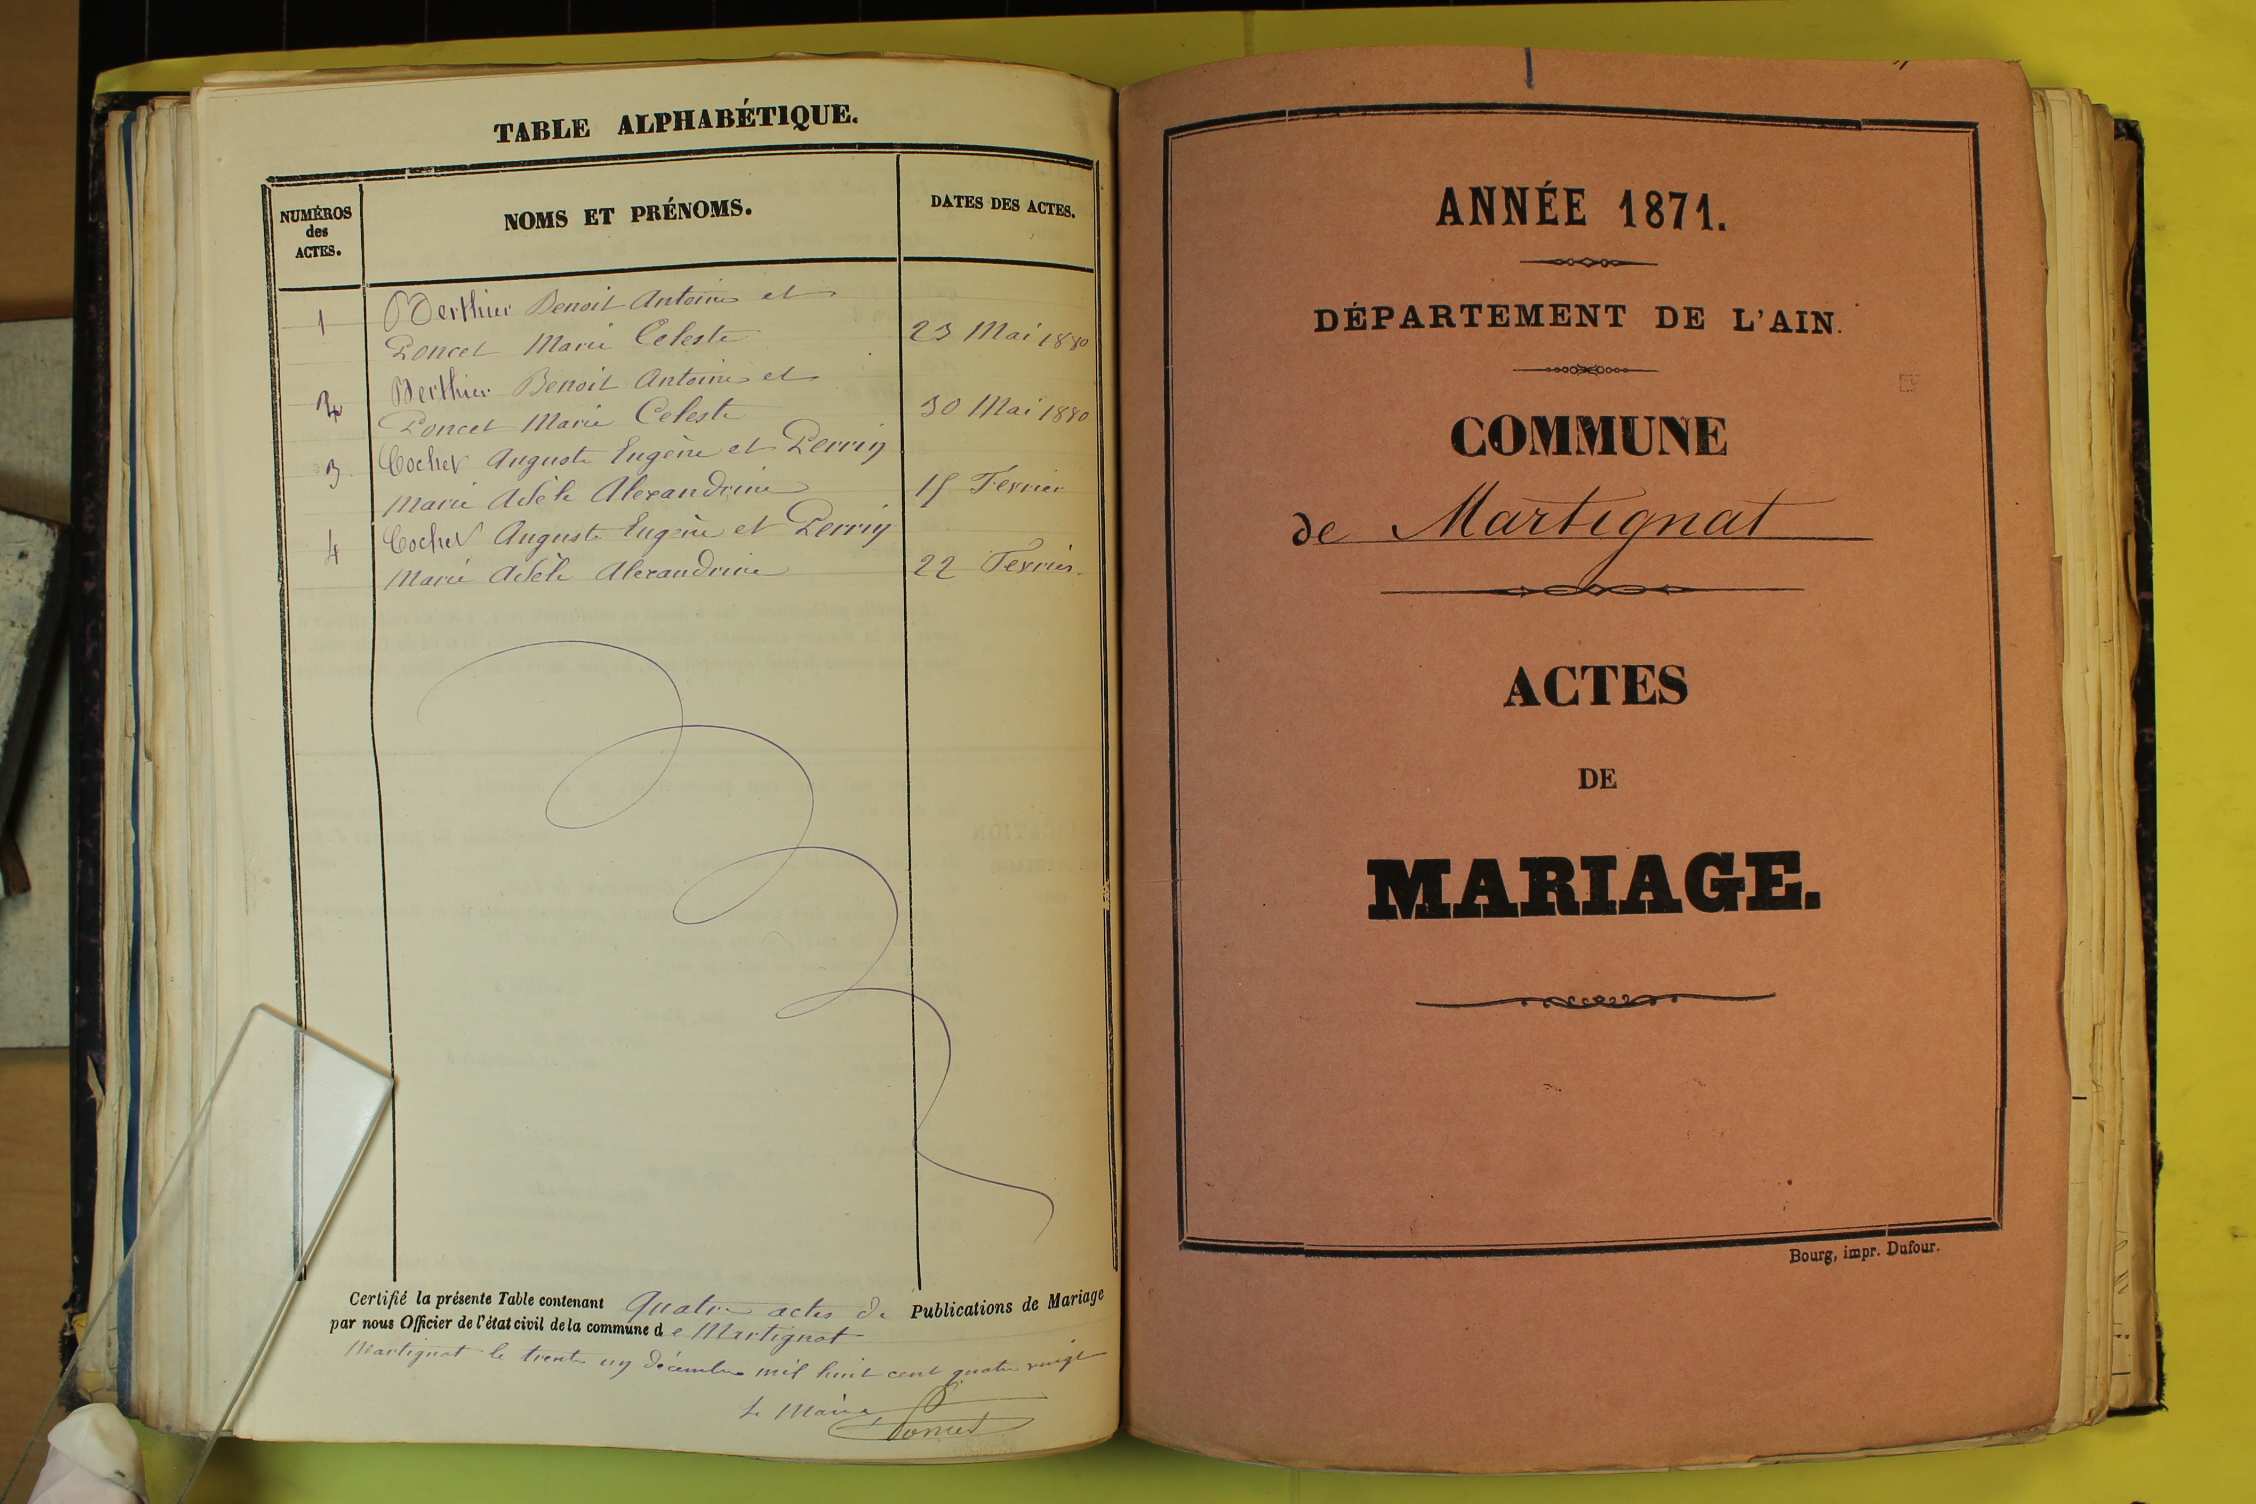 TABLE ALPHABÉTIQUE.
NUMÉROS
des
ACTES.
NOMS ET PRÉNOMS.
DATES DES ACTES.
1
Berthier Benoit Antoine et
Poncet Marie Celeste
23 Mai 1880
2
Berthier Benoit Antoine et
Poncet Marie Celeste
30 Mai 1880
3
Cochet Auguste Eugène et Perrin
Marie Adèle Alexandrine
15 Fevrier
4
Cochet Auguste Eugène et Perrin
Marie Adèle Alexandrine
22 Fevrier.
Certifié la présente Table contenant Quatre actes de Publications de Mariage
par nous Officier de l'état civil de la commune de Martignat
Martignat le trente un décembre mil huit cent quatre vingt
Le Maire
Poncet
ANNÉE 1871.
DÉPARTEMENT DE L'AIN.
COMMUNE
de Martignat
ACTES
DE
MARIAGE.
Bourg, impr. Dufour.